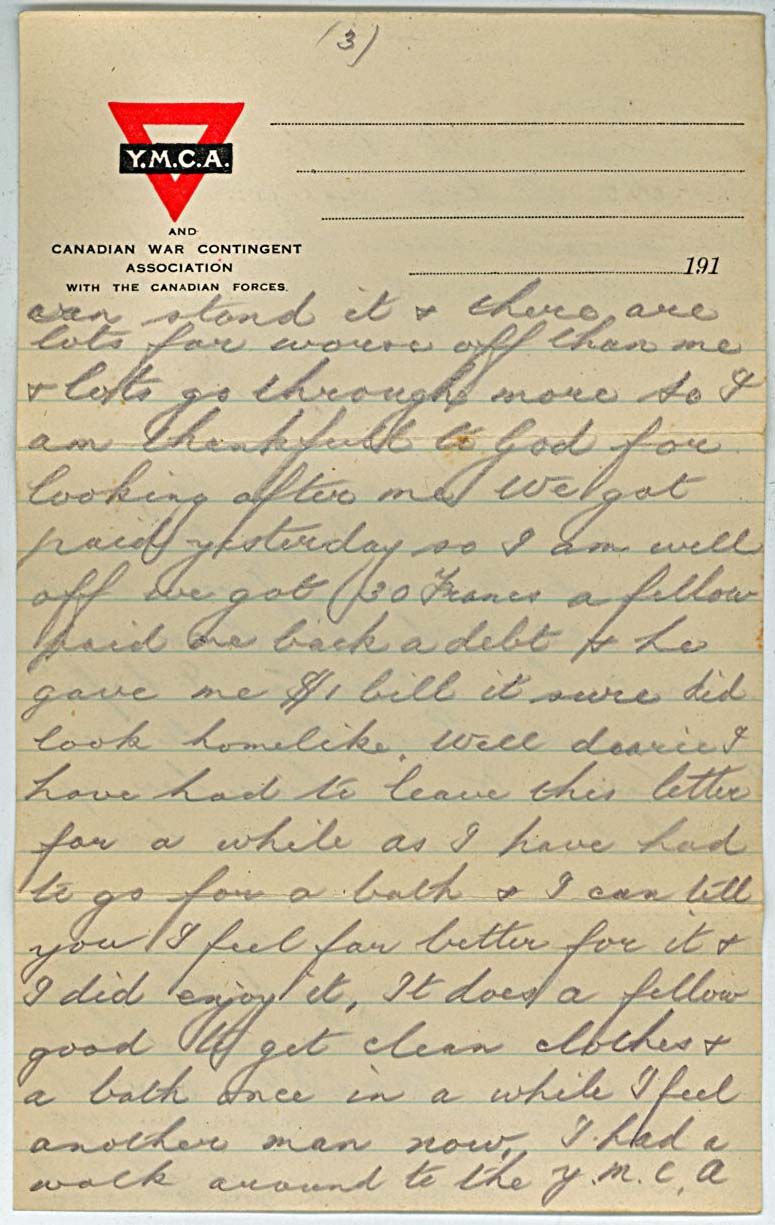 (3)
Y.M.C.A.
AND
CANADIAN WAR CONTINGENT
ASSOCIATION
WITH THE CANADIAN FORCES.
191
can stand it & there are
lots far worse off than me
& lots go through more so I
am thankfull to God for
looking after me We got
paid yesterday so I am well
off we got 30 Francs a fellow
paid me back a debt & he
gave me $1 bill it sure did
look homelike. Well dearie I
have had to leave this letter
for a while as I have had
to go for a bath & I can tell
you I feel far better for it &
I did enjoy it, It does a fellow
good to get clean clothes &
a bath once in a while I feel
another man now, I had a
walk around to the Y.M.C.A